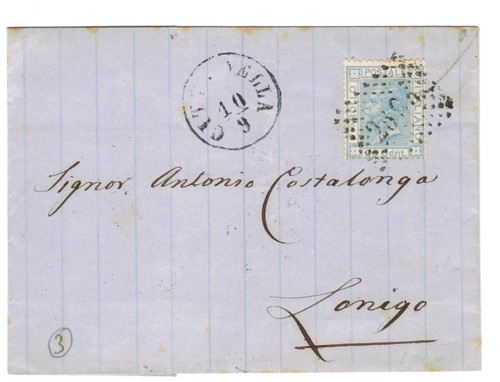 CITTADELLA
10
9
POSTALE
Signor Antonio Costalonga
Lonigo
3